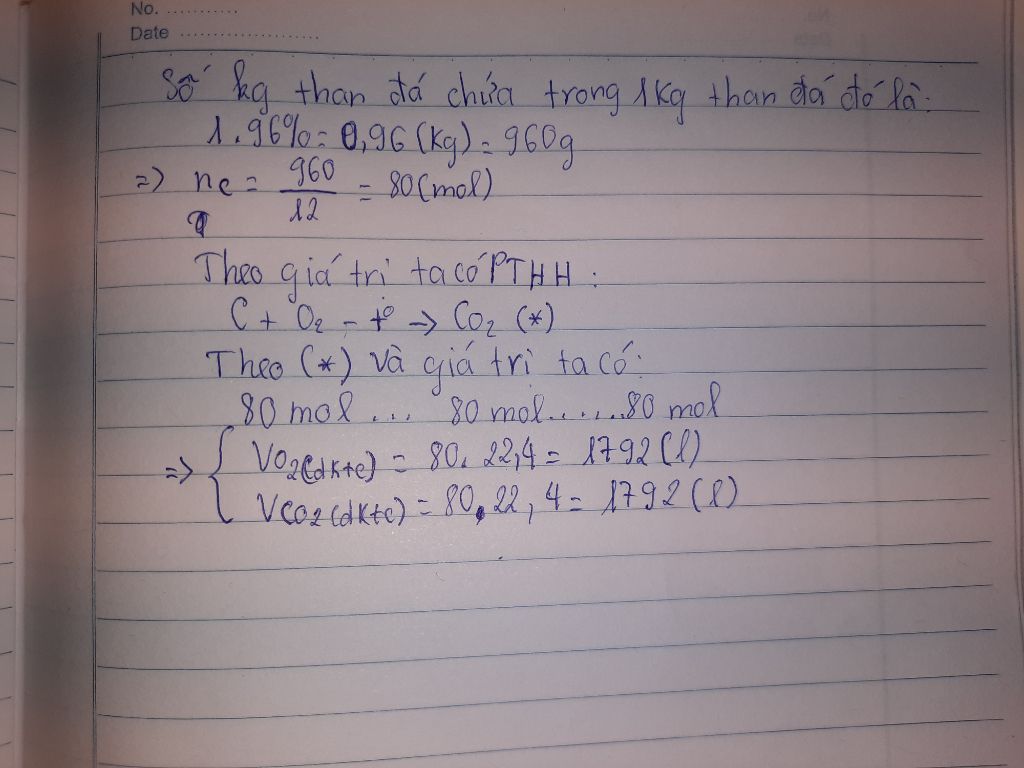 No. ...........
Date .....................
Số kg than đá chứa trong 1kg than đá đó là:
1.96% = 0,96 (kg) = 960g
=> nc = 960/12 = 80 (mol)
Theo giá trì ta có PTHH:
C + O2 - t° -> CO2 (*)
Theo (*) và giá trì ta có:
80 mol ... 80 mol......80 mol
=> { VO2(đktc) = 80. 22,4 = 1792 (l)
VCO2 (đktc) = 80.22,4 = 1792 (l)